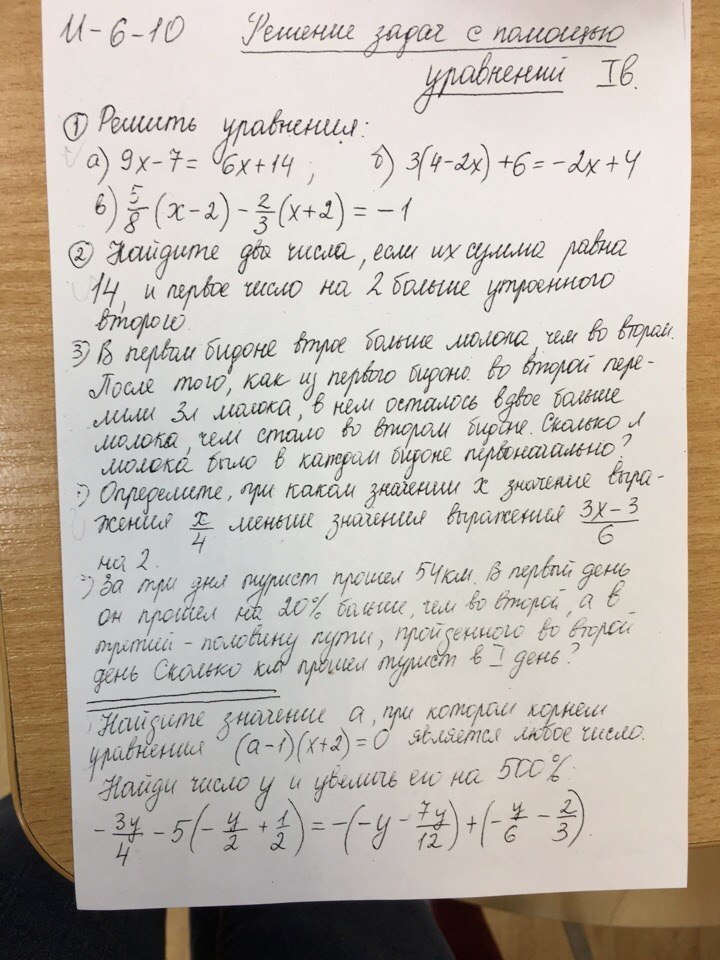 И-6-10 Решение задач с помощью
уравнений Iв.
① Решить уравнения:
а) 9x-7= 6x+14 ; б) 3(4-2x)+6=-2x+4
в) 5/8 (x-2) - 2/3 (x+2) = -1
② Найдите два числа, если их сумма равна
14, и первое число на 2 больше утроенного
второго.
3) В первом бидоне втрое больше молока, чем во втором.
После того, как из первого бидона во второй пере-
лили 3л молока, в нем осталось вдвое больше
молока, чем стало во втором бидоне. Сколько л
молока было в каждом бидоне первоначально?
Определите, при каком значении x значение выра-
жения x/4 меньше значения выражения 3x-3/6
на 2.
За три дня турист прошел 54км. В первый день
он прошел на 20% больше, чем во второй, а в
третий - половину пути, пройденного во второй
день Сколько км прошел турист в I день?
Найдите значение а, при котором корнем
уравнения (а-1)(x+2)=0 является любое число.
Найди число y и увеличь его на 500%:
-3y/4 -5(-y/2 + 1/2) = -(-y - 7y/12) + (-y/6 - 2/3)